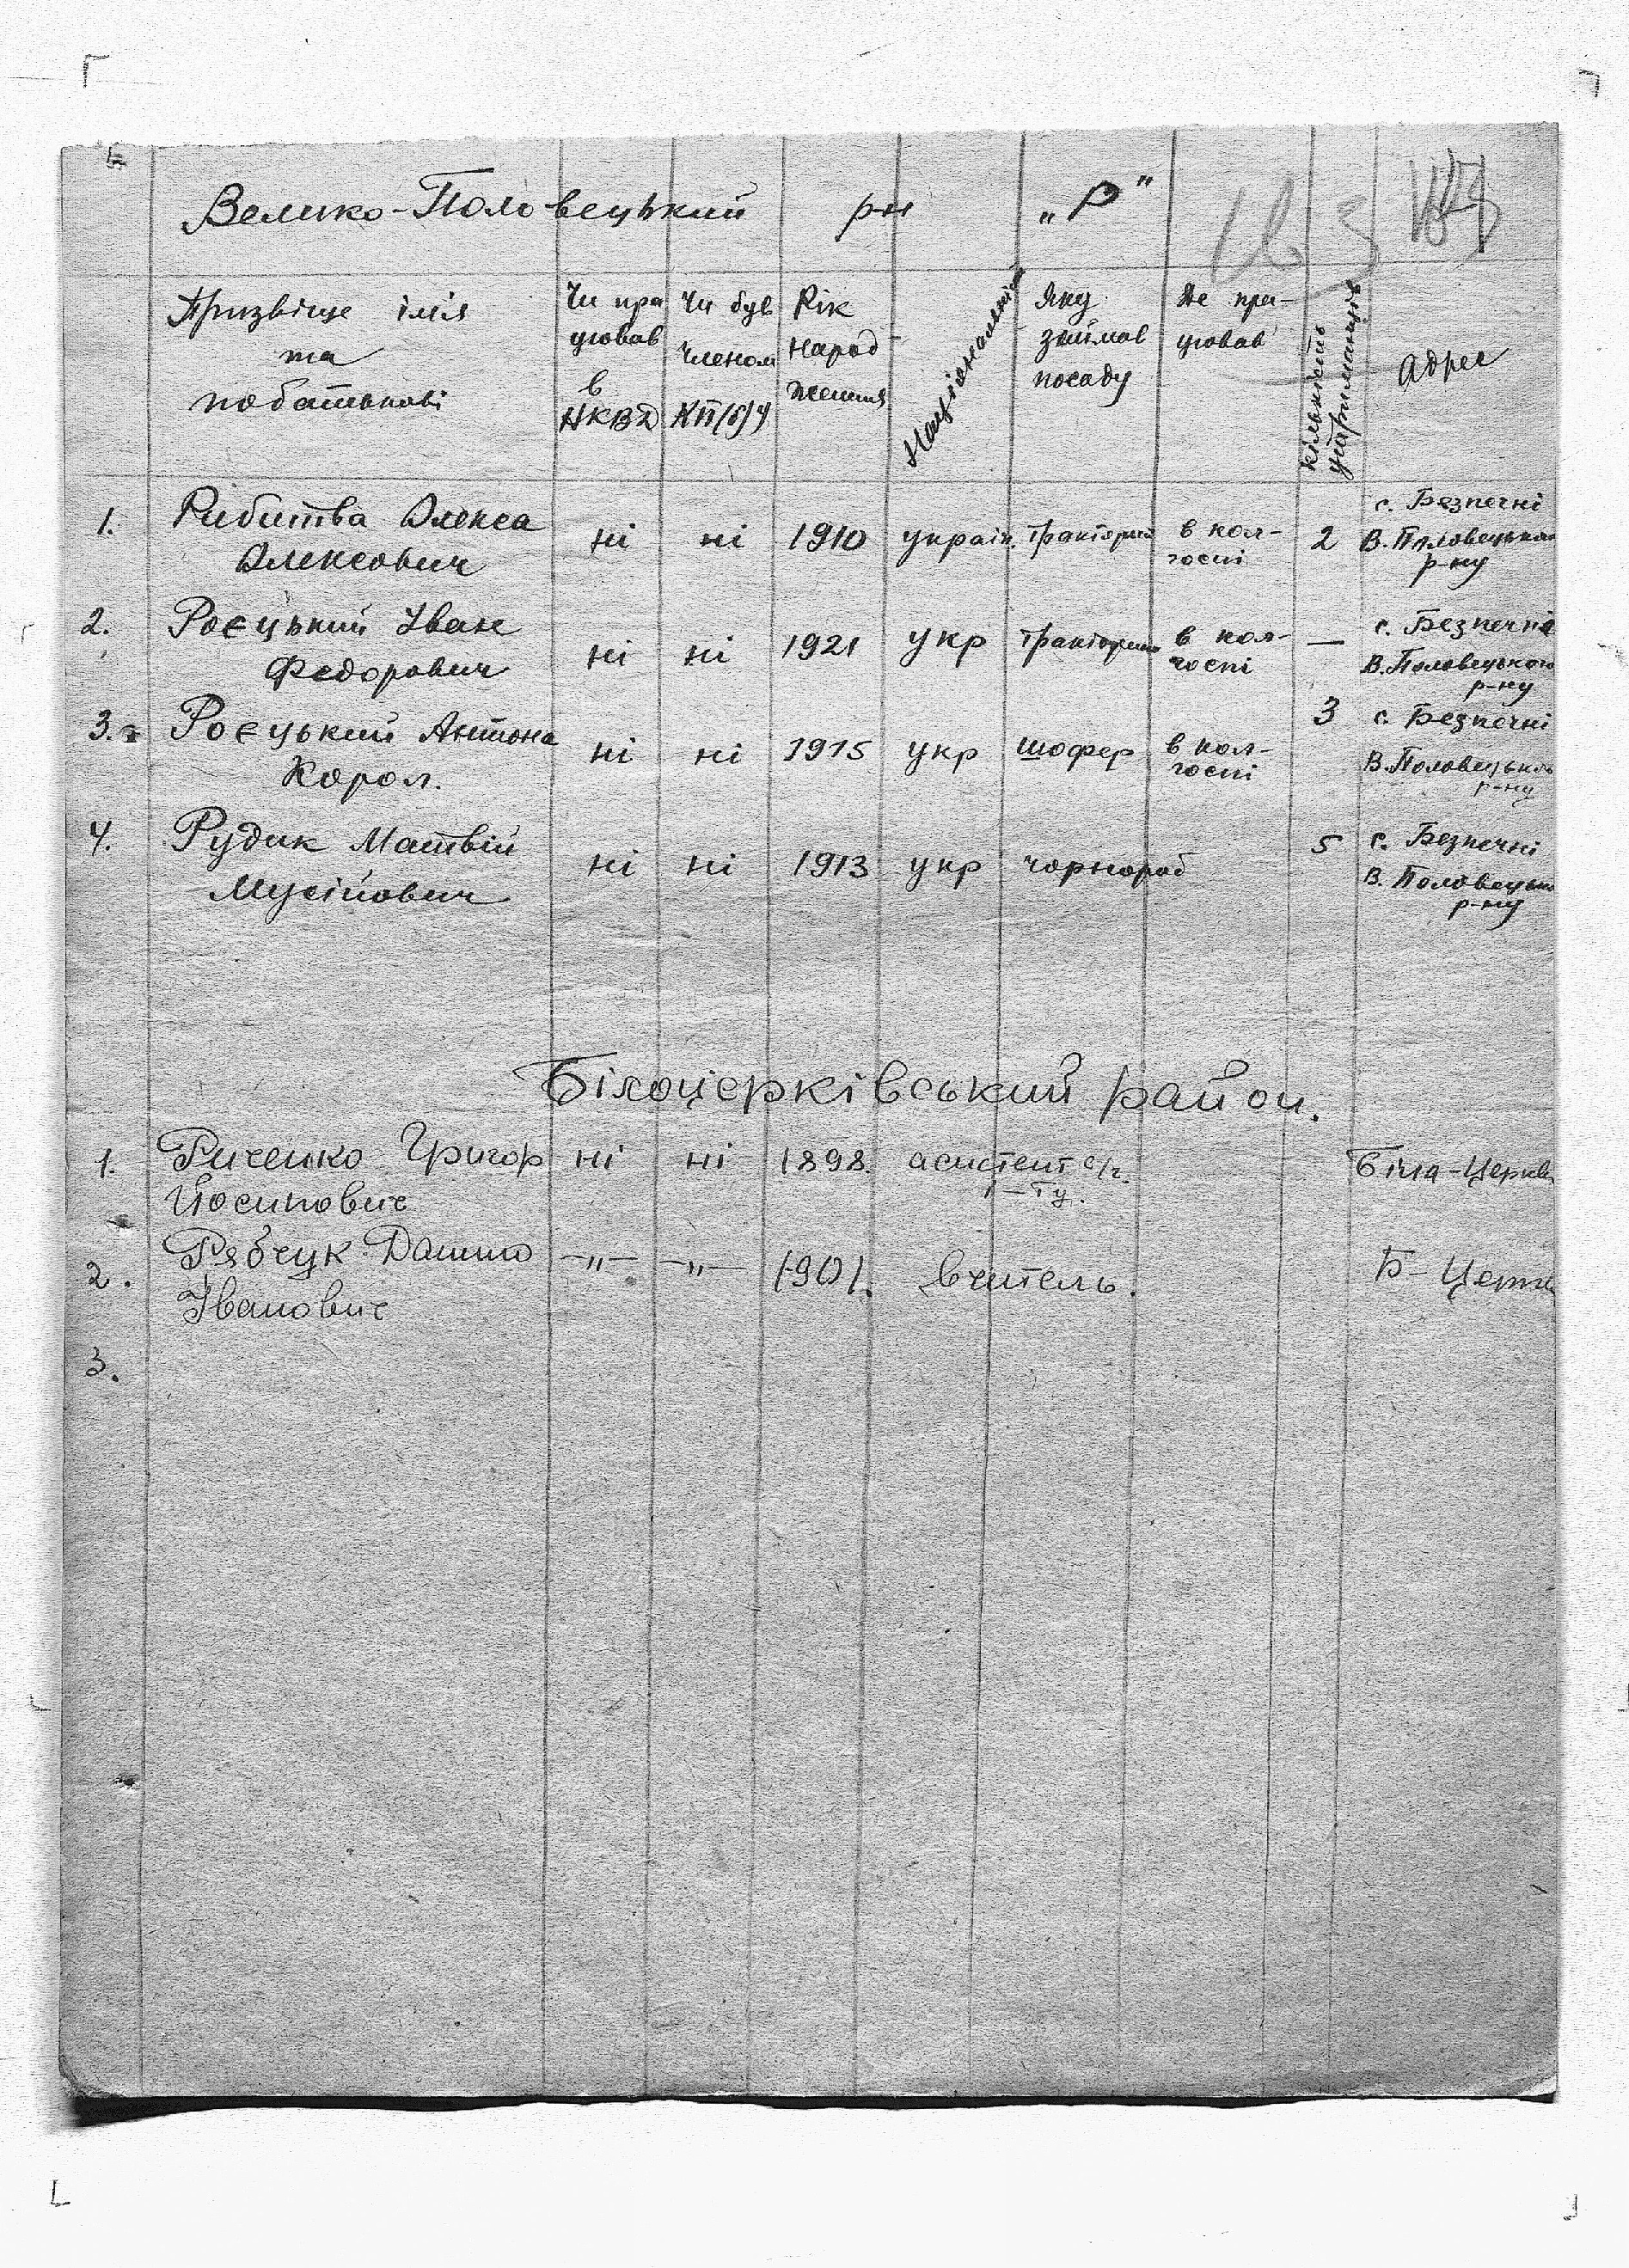 Велико-Половецький р-н „Р"
Призвіще ім'я та побатькові
Чи працював в НКВД
Чи був членом КП(б)У
Рік народження
Національність
Яку займав посаду
Де працював
кількість утриманців
Адрес
1. Рибитва Олекса Олексович ні ні 1910 україн. тракторист в колгоспі 2 с. Безпечні В.Половецького р-ну
2. Роєцький Іван Федорович ні ні 1921 укр тракторист в колгоспі — с. Безпечні В.Половецького р-ну
3. Роєцький Антона Корол. ні ні 1915 укр шофер в колгоспі 3 с. Безпечні В.Половецького р-ну
4. Рудик Матвій Мусійович ні ні 1913 укр чорнороб 5 с. Безпечні В. Половецько р-ну
Білоцерківський район.
1. Риченко Григор Йосипович ні ні 1898. асистент с/г. і-ту. Біла-Церква
2. Рябчук Данило Іванович —„— —„— 1901. вчитель. Б-Церк
3.